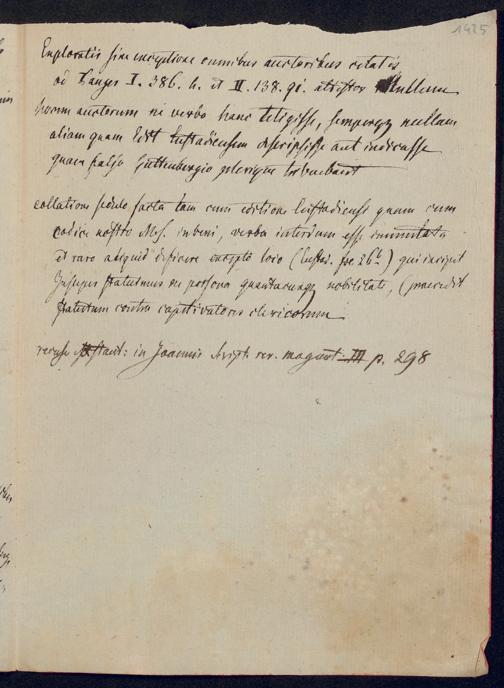 1425
Exploratis sine exceptione omnibus auctoribus citatis
ad Panzer I. 386. h. et II. 138. qi. attestor nullum
horum auctorum ni verbo hanc tetigisse, semperque nullam
aliam quam Edit Eustadiensem descripsisse aut indicasse
quam falso Guttenbergio plerique tribuebant
collatione sedulo facta tam cum editione Eustadiensi quam cum
codice nostro Mss. inveni, verba interdum esse immutata
et raro aliquid deficere excepto loco (Eustad. fol 26b) qui incipit
Insuper statuimus ne persona quantacunque nobilitate, (praecedit
statutum contra captivatores clericorum
recusa extant: in Joannis Script. rer. mogunt. III p. 298